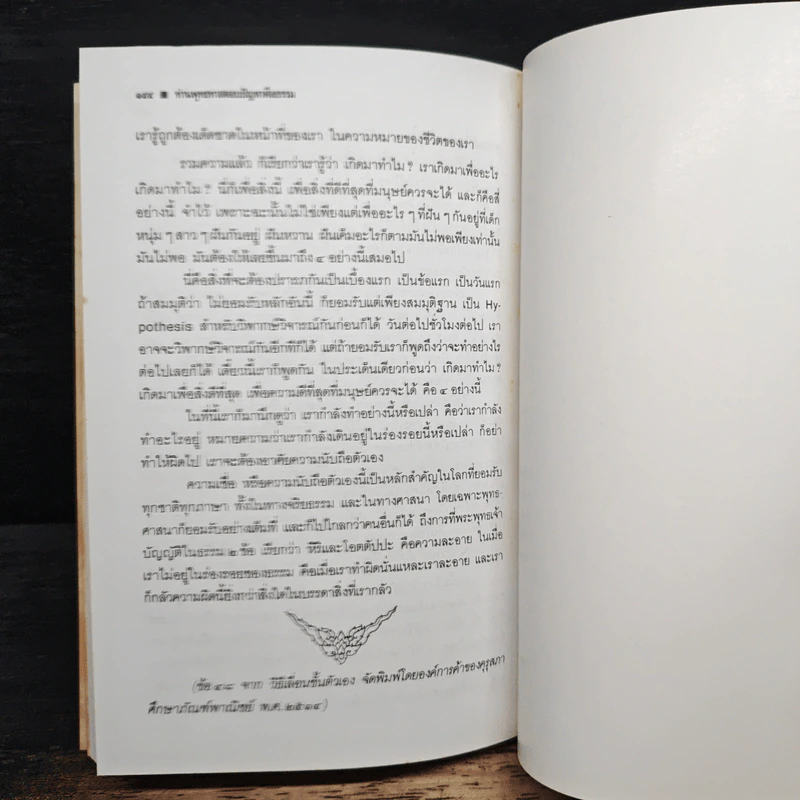 ๑๔๔ ■ ท่านพุทธทาสตอบปัญหาศีลธรรม
เรารู้ถูกต้องเด็ดขาดในหน้าที่ของเรา ในความหมายของชีวิตของเรา
รวมความแล้ว ก็เรียกว่าเรารู้ว่า เกิดมาทำไม? เราเกิดมาเพื่ออะไร
เกิดมาทำไม? นี่ก็เพื่อสิ่งนี้ เพื่อสิ่งที่ดีที่สุดที่มนุษย์ควรจะได้ และก็คือสี่
อย่างนี้ จำไว้ เพราะฉะนั้นไม่ใช่เพียงแต่เพื่ออะไร ๆ ที่ฝัน ๆ กันอยู่ ที่เด็ก
หนุ่ม ๆ สาว ๆ ฝันกันอยู่ ฝันหวาน ฝันเค็มอะไรก็ตามมันไม่พอเพียงเท่านั้น
มันไม่พอ มันต้องให้เลยขึ้นมาถึง ๔ อย่างนี้เสมอไป
นี่คือสิ่งที่จะต้องปรารภกันเป็นเบื้องแรก เป็นข้อแรก เป็นวันแรก
ถ้าสมมุติว่า ไม่ยอมรับหลักอันนี้ ก็ยอมรับแต่เพียงสมมุติฐาน เป็น Hy-
pothesis สำหรับวิพากษ์วิจารณ์กันก่อนก็ได้ วันต่อไปชั่วโมงต่อไป เรา
อาจจะวิพากษ์วิจารณ์กันอีกทีก็ได้ แต่ถ้ายอมรับเราก็พูดถึงว่าจะทำอย่างไร
ต่อไปเลยก็ได้ เดี๋ยวนี้เราก็พูดกัน ในประเด็นเดียวก่อนว่า เกิดมาทำไม?
เกิดมาเพื่อสิ่งดีที่สุด เพื่อความดีที่สุดที่มนุษย์ควรจะได้ คือ ๔ อย่างนี้
ในที่นี้เราก็มานึกดูว่า เรากำลังทำอย่างนี้หรือเปล่า คือว่าเรากำลัง
ทำอะไรอยู่ หมายความว่าเรากำลังเดินอยู่ในร่องรอยนี้หรือเปล่า ก็อย่า
ทำให้ผิดไป เราจะต้องอาศัยความนับถือตัวเอง
ความเชื่อ หรือความนับถือตัวเองนี้เป็นหลักสำคัญในโลกที่ยอมรับ
ทุกชาติทุกภาษา ทั้งในทางจริยธรรม และในทางศาสนา โดยเฉพาะพุทธ-
ศาสนาก็ยอมรับอย่างเต็มที่ และก็ไปไกลกว่าคนอื่นก็ได้ ถึงการที่พระพุทธเจ้า
บัญญัติในธรรม ๒ ข้อ เรียกว่า หิริและโอตตัปปะ คือความละอาย ในเมื่อ
เราไม่อยู่ในร่องรอยของธรรม คือเมื่อเราทำผิดนั่นแหละเราละอาย และเรา
ก็กลัวความผิดนี้ยิ่งกว่าสิ่งใดในบรรดาสิ่งที่เรากลัว
(ข้อ จาก วิธีเลื่อนชั้นตัวเอง จัดพิมพ์โดยองค์การค้าของคุรุสภา
ศึกษาภัณฑ์พาณิชย์ พ.ศ. ๒๕๑๔)